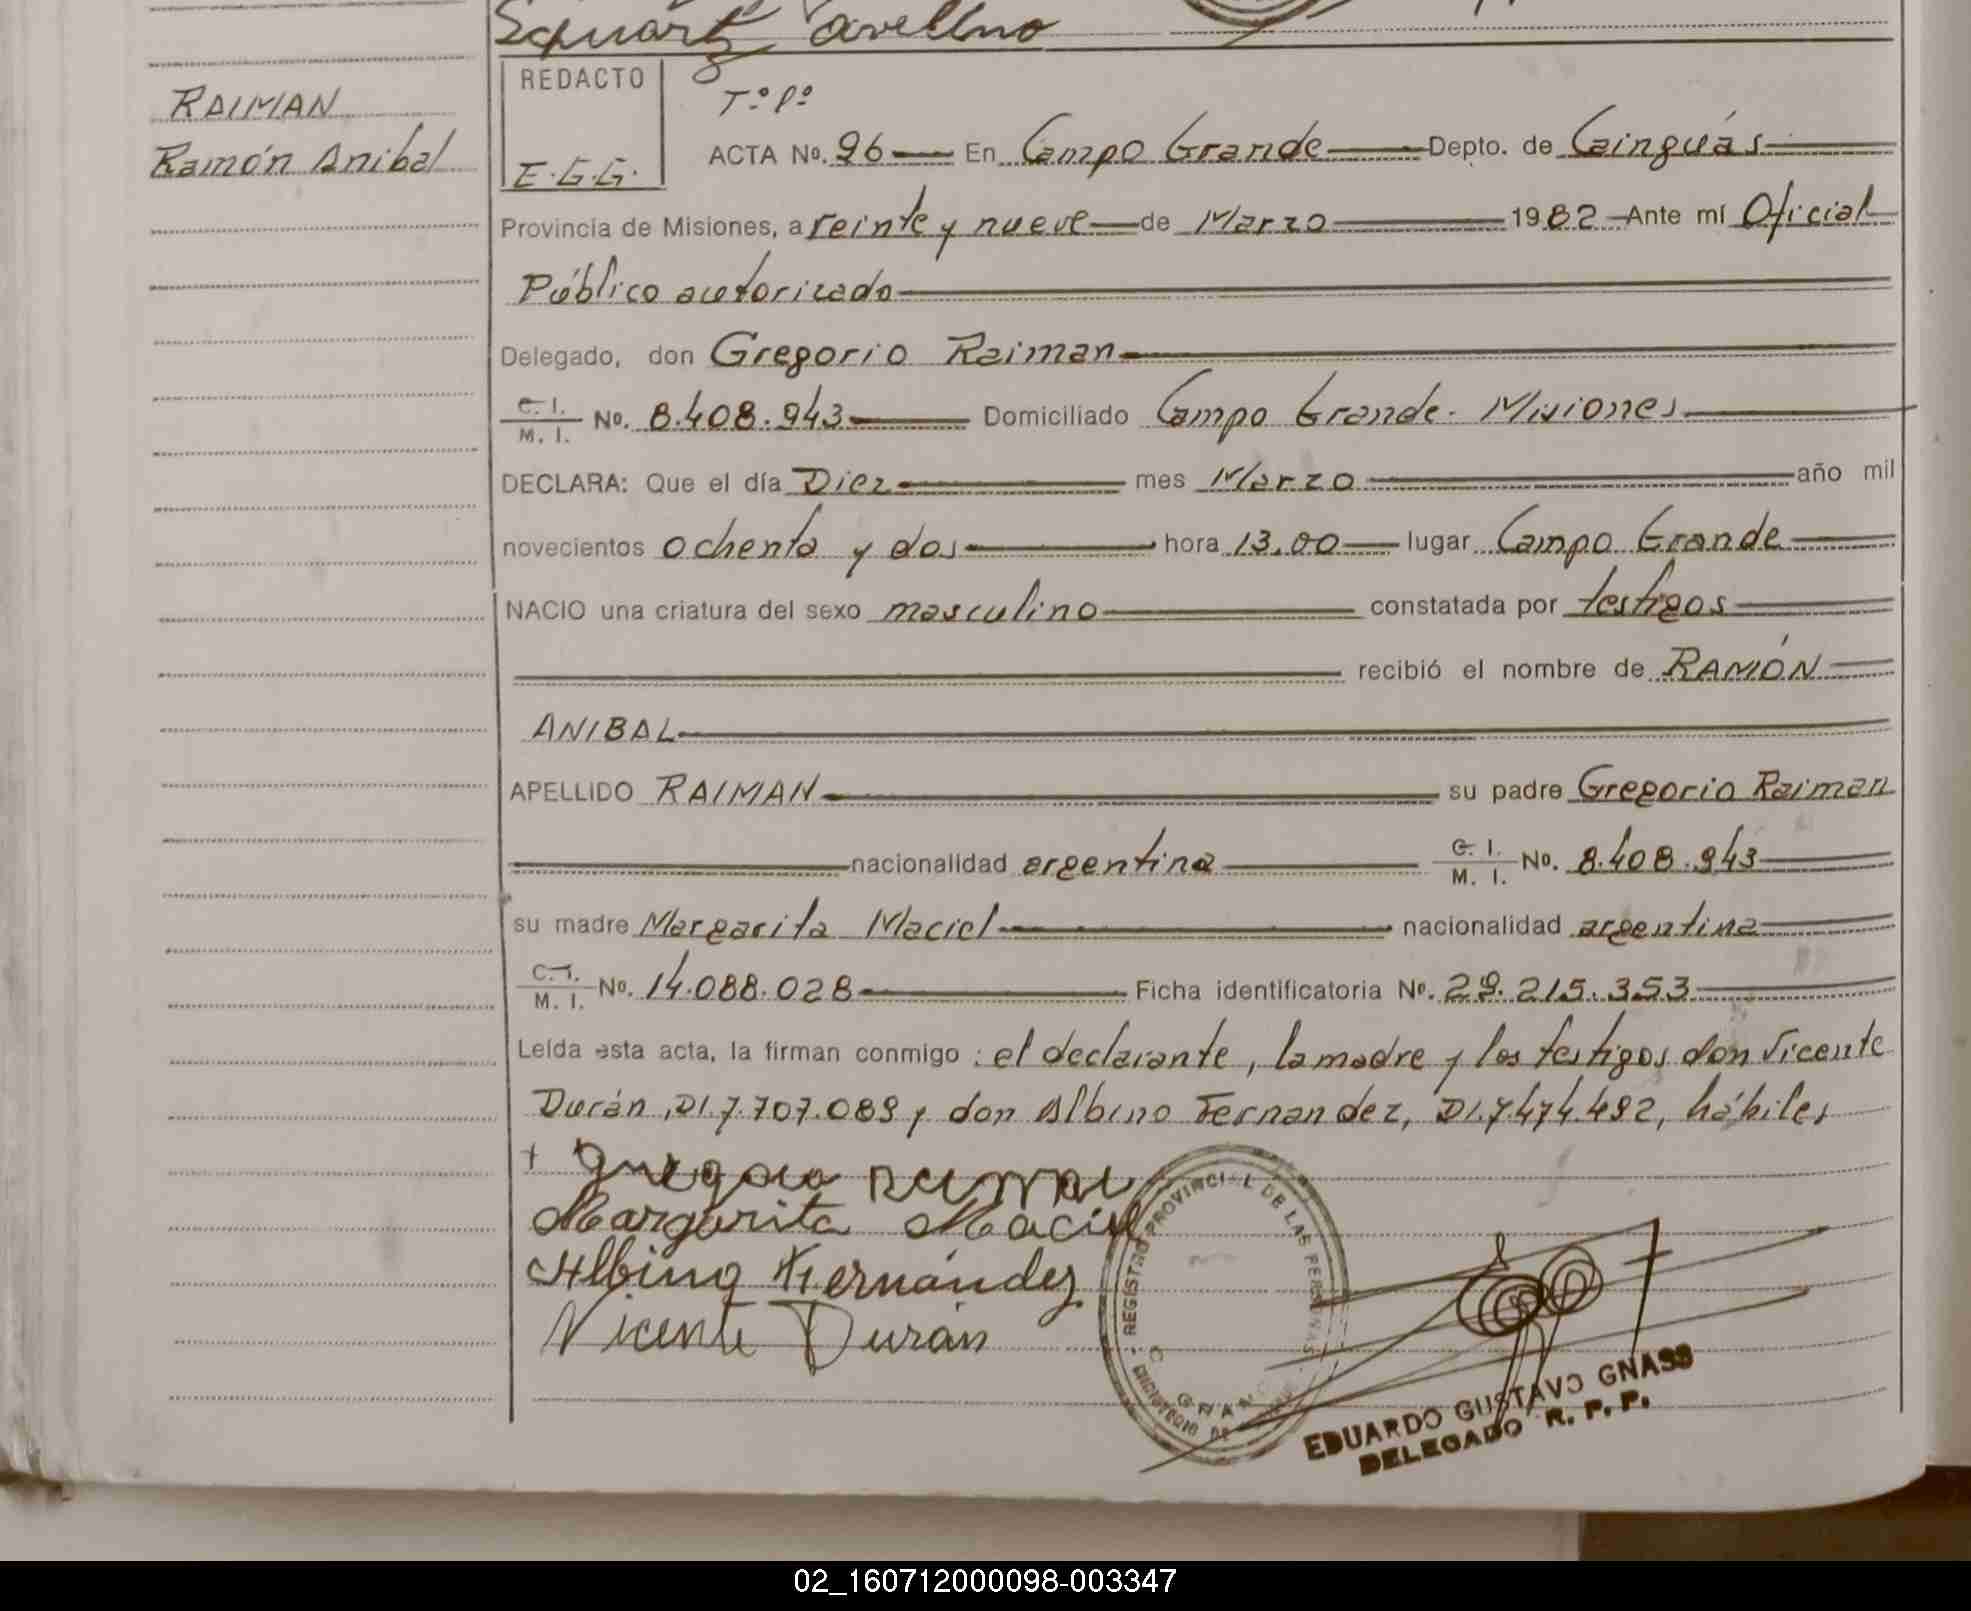 Squartz Avelino
RAIMAN
Ramón Anibal
REDACTO
E.G.G.
Tº Pº
ACTA Nº. 96 En Campo Grande Depto. de Cainguás
Provincia de Misiones, a veinte y nueve de Marzo 1982 Ante mí Oficial
Público autorizado
Delegado, don Gregorio Raiman
C. I. / M. I. Nº. 8.408.943 Domiciliado Campo Grande - Misiones
DECLARA: Que el día Diez mes Marzo año mil
novecientos ochenta y dos hora 13.00 lugar Campo Grande
NACIO una criatura del sexo masculino constatada por testigos
recibió el nombre de RAMÓN
ANIBAL
APELLIDO RAIMAN su padre Gregorio Raiman
nacionalidad argentina C. I. / M. I. Nº. 8.408.943
su madre Margarita Maciel nacionalidad argentina
C. I. / M. I. Nº. 14.088.028 Ficha identificatoria Nº. 29.215.353
Leída esta acta, la firman conmigo : el declarante, la madre y los testigos don Vicente
Durán, DI.7.707.089 y don Albino Fernandez, DI.7.474.492, hábiles
Margarita Maciel
Albino Fernández
Vicente Durán
REGISTRO PROVINCIAL DE LAS PERSONAS
EDUARDO GUSTAVO GNASS
DELEGADO R. P. P.
02_160712000098-003347